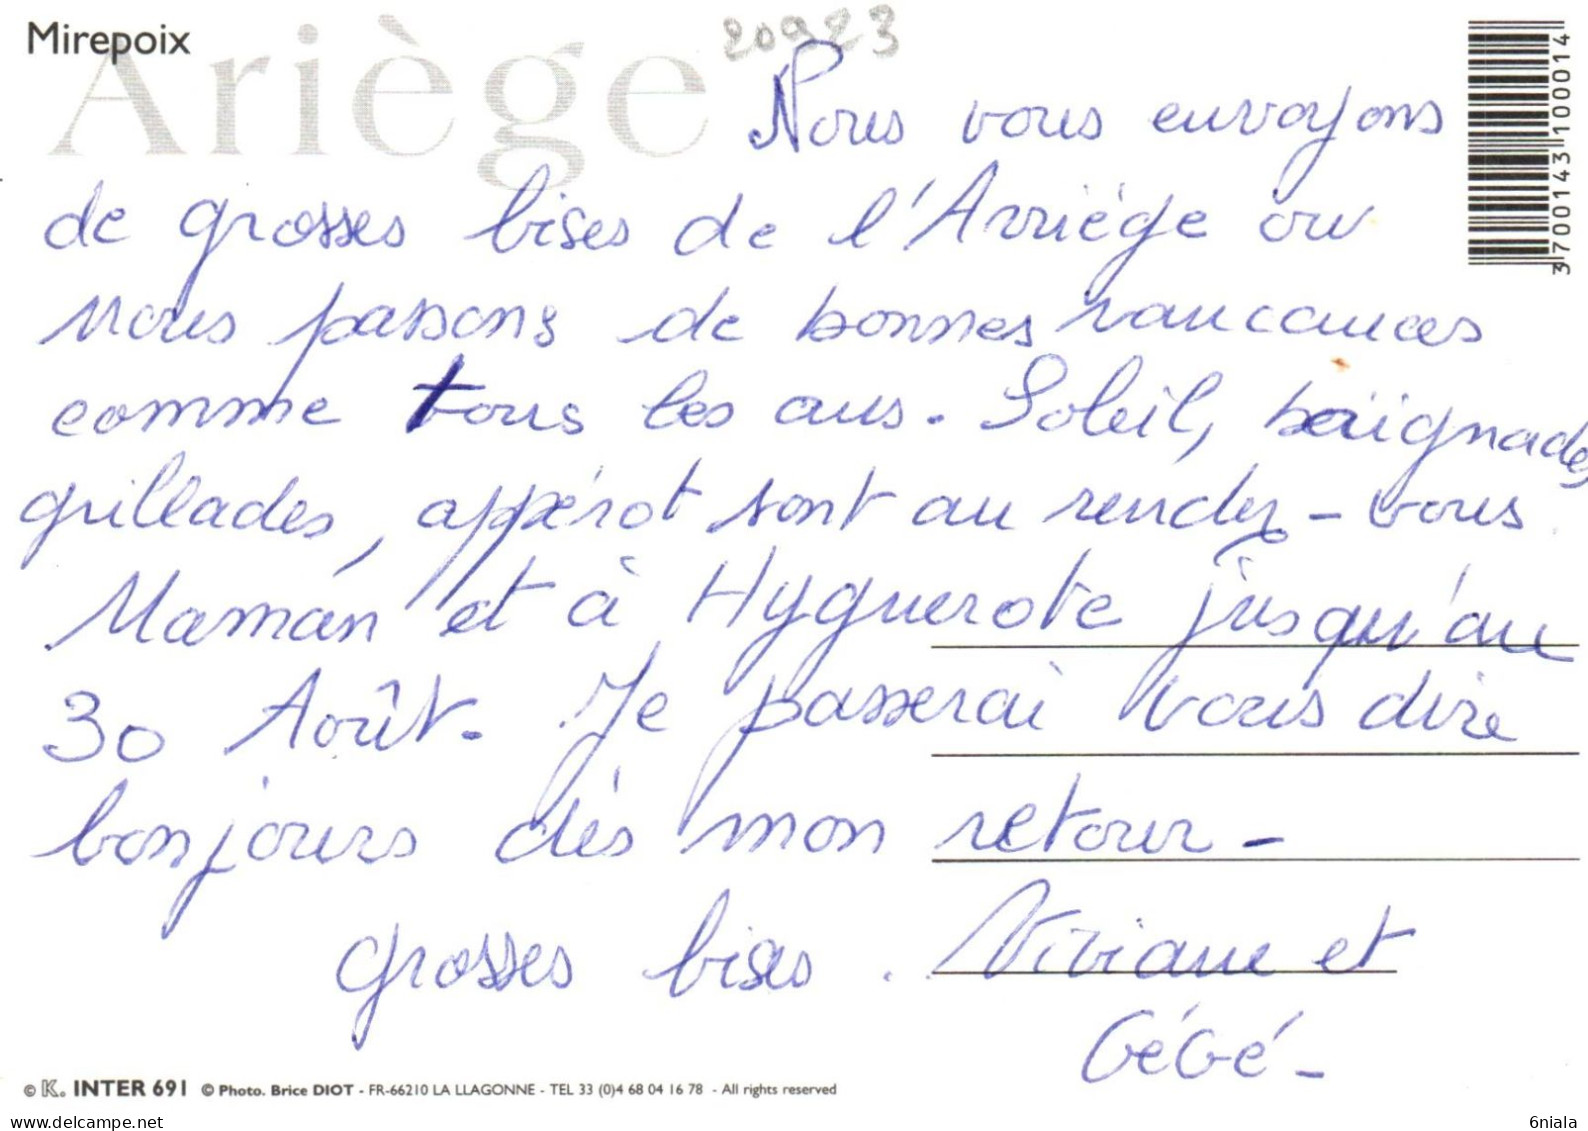 Mirepoix
Ariège
20923
Nous vous envoyons
de grosses bises de l'Arriége ou
nous passons de bonnes vaucances
comme tous les ans. Soleil, baïgnades,
grillades, appérot sont au rendez-vous
Maman et à Hyguerote jusqu'au
30 Août. Je passerai vous dire
bonjours dès mon retour -
grosses bises. Viviane et
bébé -
3700143100014
© K. INTER 691 © Photo. Brice DIOT - FR-66210 LA LLAGONNE - TEL 33 (0)4 68 04 16 78 - All rights reserved
www.delcampe.net
6niala